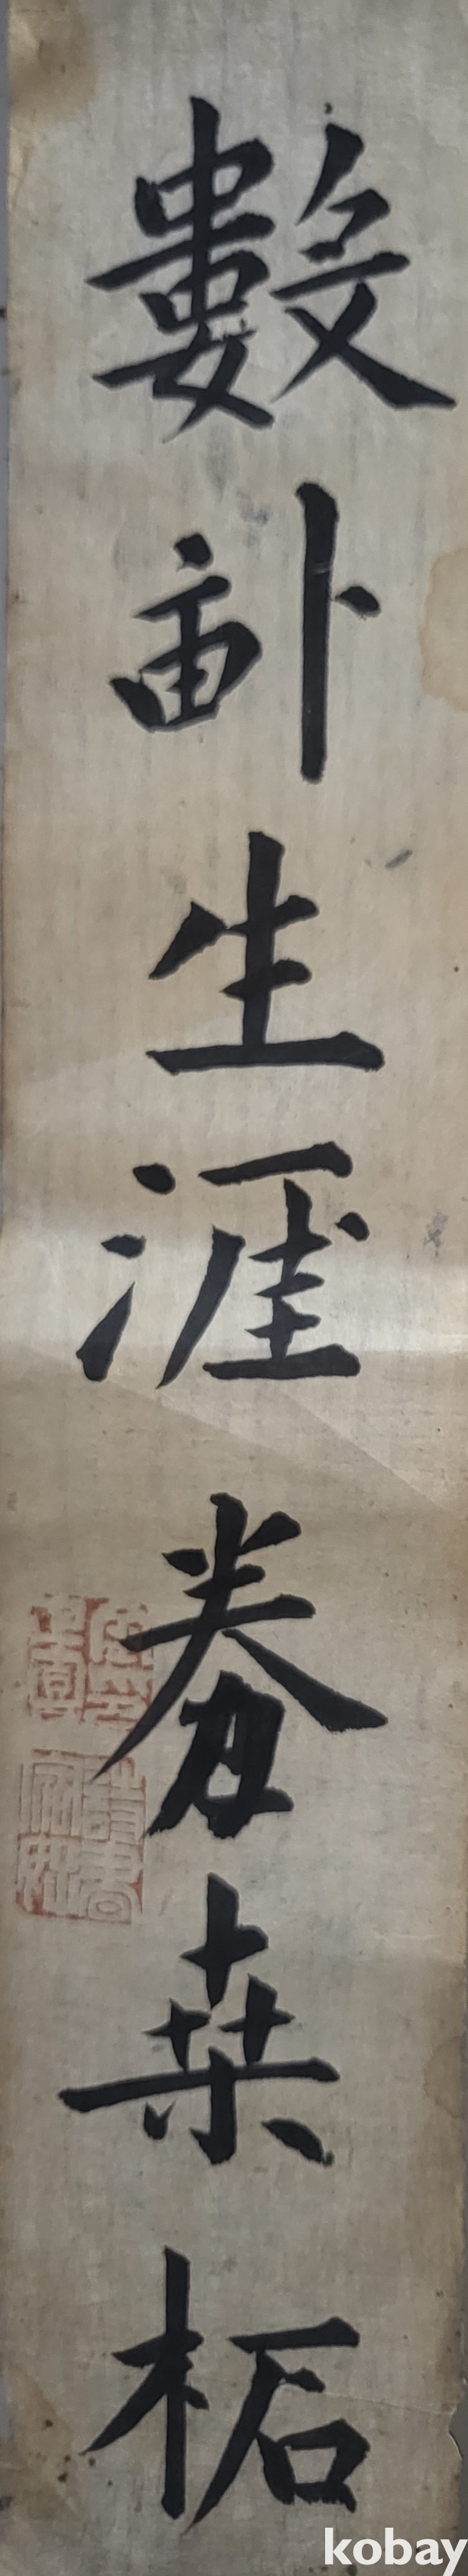 數畝生涯養桑柘
kobay